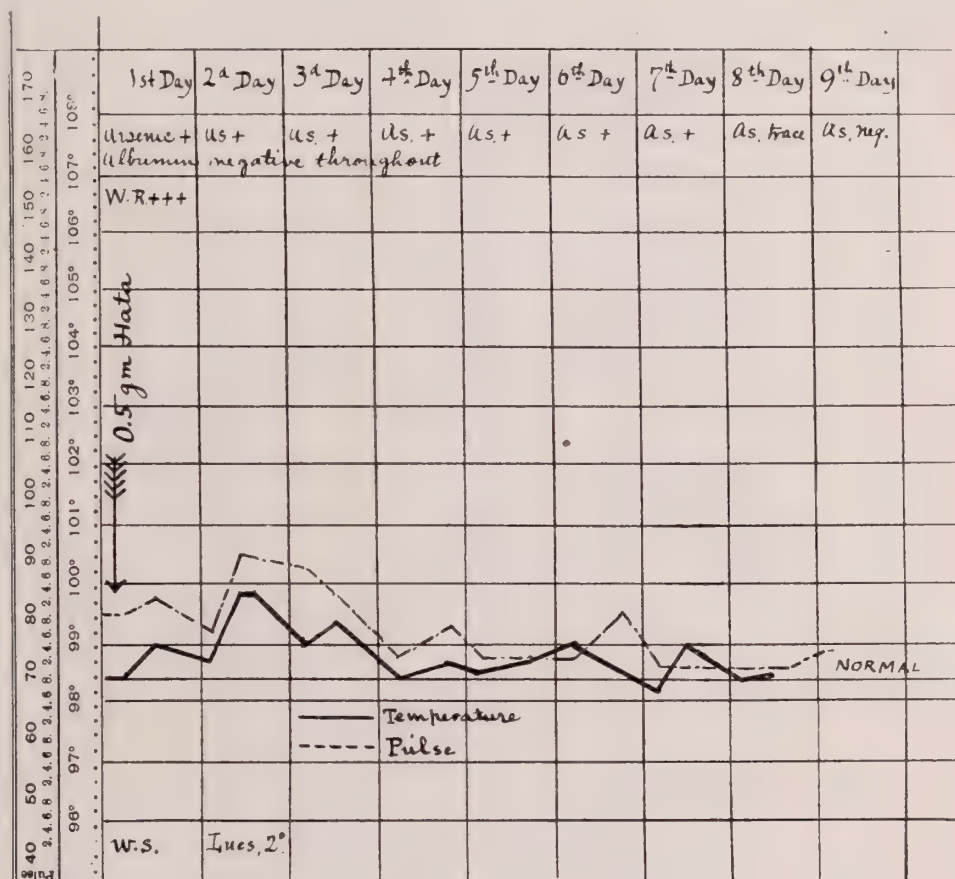 1st Day 2d Day 3d Day 4th Day 5th Day 6th Day 7th Day 8th Day 9th Day
Arsenic + As + As. + As. + As. + As + As. + As. trace As. neg.
Albumin negative throughout
W.R+++
0.5 gm Hata
170
160
150
140
130
120
110
100
90
80
70
60
50
40
Pulse
108°
107°
106°
105°
104°
103°
102°
101°
100°
99°
98°
97°
96°
NORMAL
Temperature
Pulse
W.S. Lues, 2°